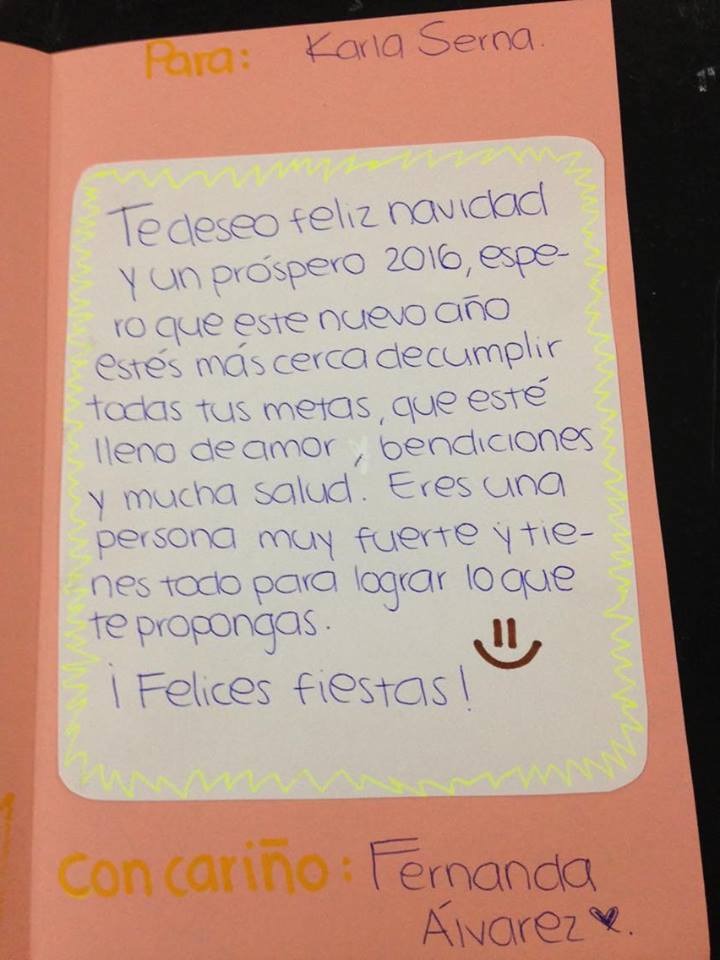 Para: Karla Serna.
Te deseo feliz navidad
y un próspero 2016, espe-
ro que este nuevo año
estés más cerca de cumplir
todas tus metas, que esté
lleno de amor, bendiciones
y mucha salud. Eres una
persona muy fuerte y tie-
nes todo para lograr lo que
te propongas.
¡Felices fiestas!
Con cariño: Fernanda
Álvarez